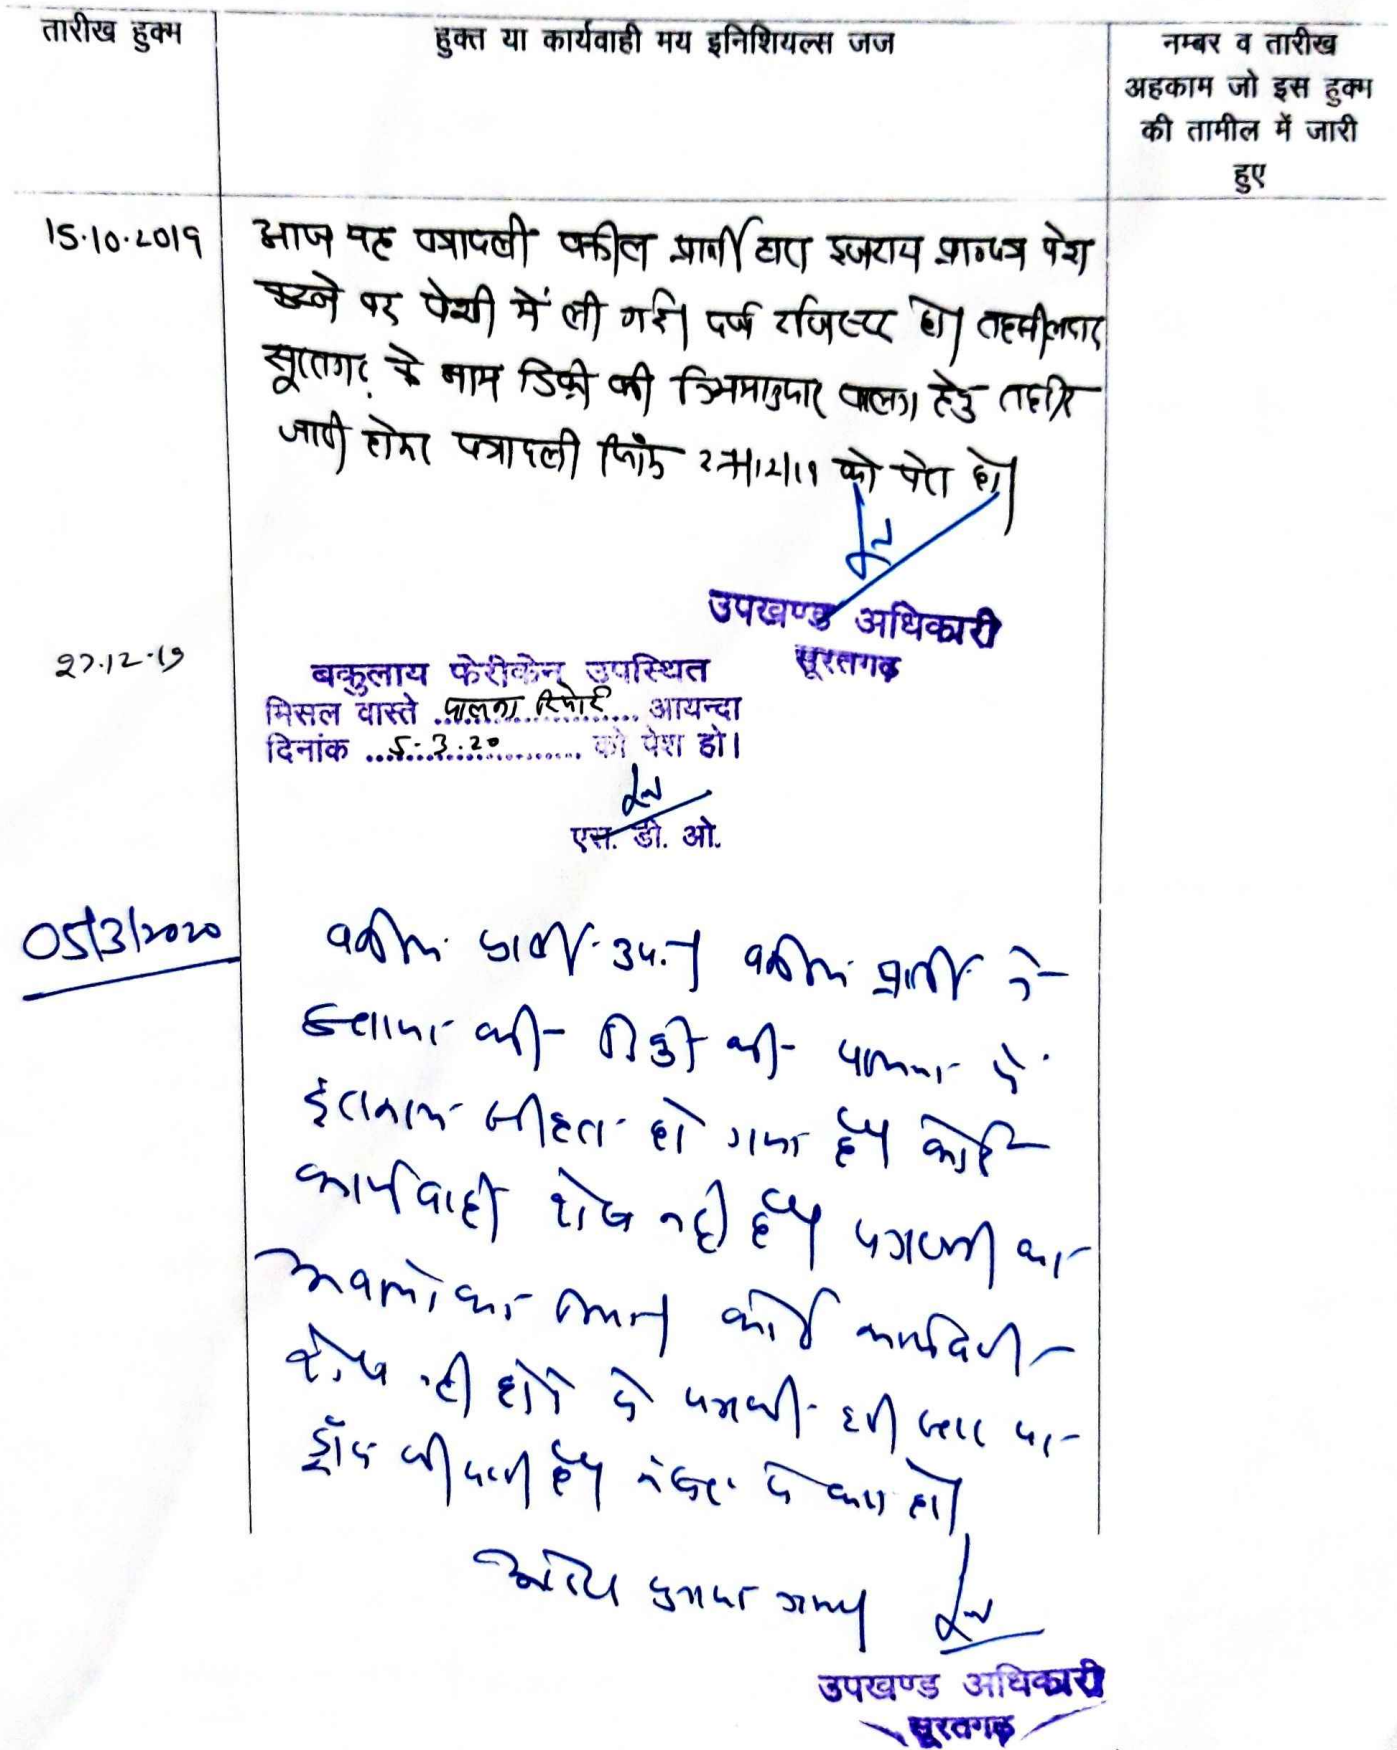 तारीख हुक्म
हुक्त या कार्यवाही मय इनिशियल्स जज
नम्बर व तारीख
अहकाम जो इस हुक्म
की तामील में जारी
हुए
15.10.2019
आज यह पत्रावली वकील प्रार्थी द्वारा इजराय प्रा०पत्र पेश
करने पर पेशी में ली गई। दर्ज रजिस्टर हो। तहसीलदार
सूरतगढ़ के नाम डिक्री की नियमानुसार पालना हेतु तहरीर
जारी होकर पत्रावली दिनांक 27/12/19 को पेश हो।
उपखण्ड अधिकारी
सूरतगढ़
27.12.19
बकुलाय फेरीकेन उपस्थित
मिसल वास्ते पालना रिपोर्ट आयन्दा
दिनांक 5.3.20 को पेश हो।
एस. डी. ओ.
05/3/2020
वकील प्रार्थी उप.। वकील प्रार्थी ने
की डिक्री की पालना में
इंतकाल हो गया है। कोई
कार्यवाही शेष नही है। पत्रावली का
अवलोकन किया। कोई कार्यवाही
शेष नही होने से पत्रावली इसी स्तर पर
ड्रॉप की जाती है। नंबर से कम हो।
आदेश सुनाया गया।
उपखण्ड अधिकारी
सूरतगढ़